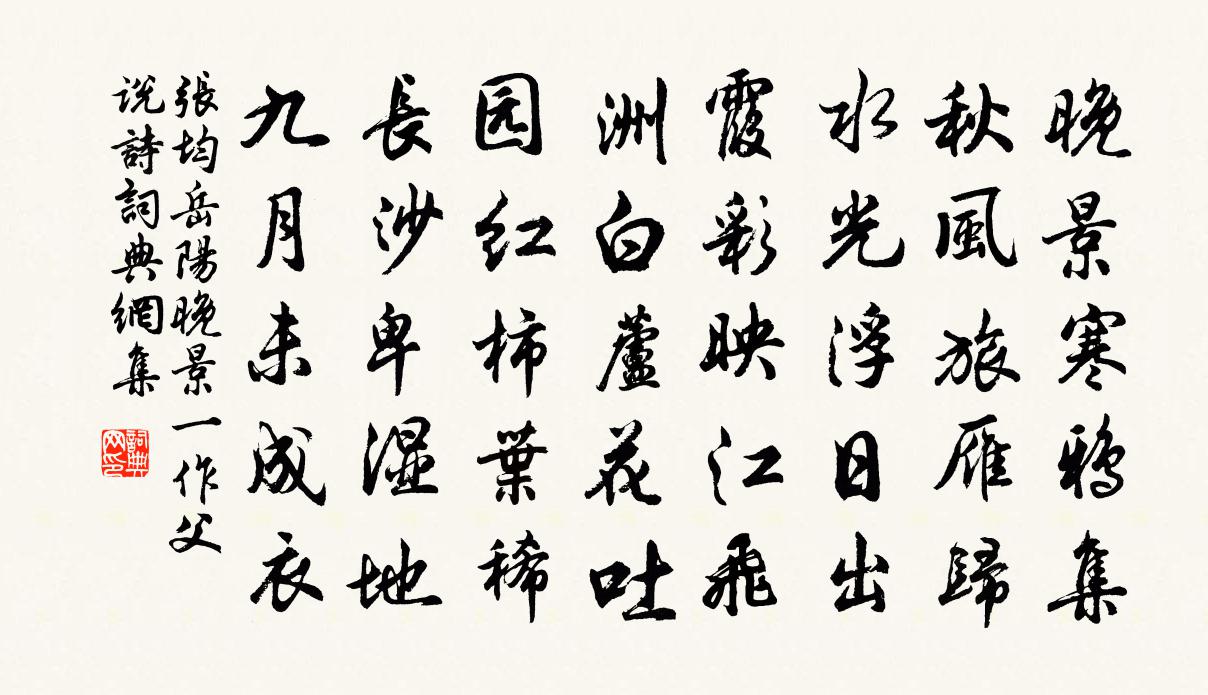 晚景寒鴉集
秋風旅雁歸
水光浮日出
霞彩映江飛
洲白蘆花吐
园红柿葉稀
長沙卑湿地
九月未成衣
張均岳陽晚景一作父
说詩詞典網集
詞典网印